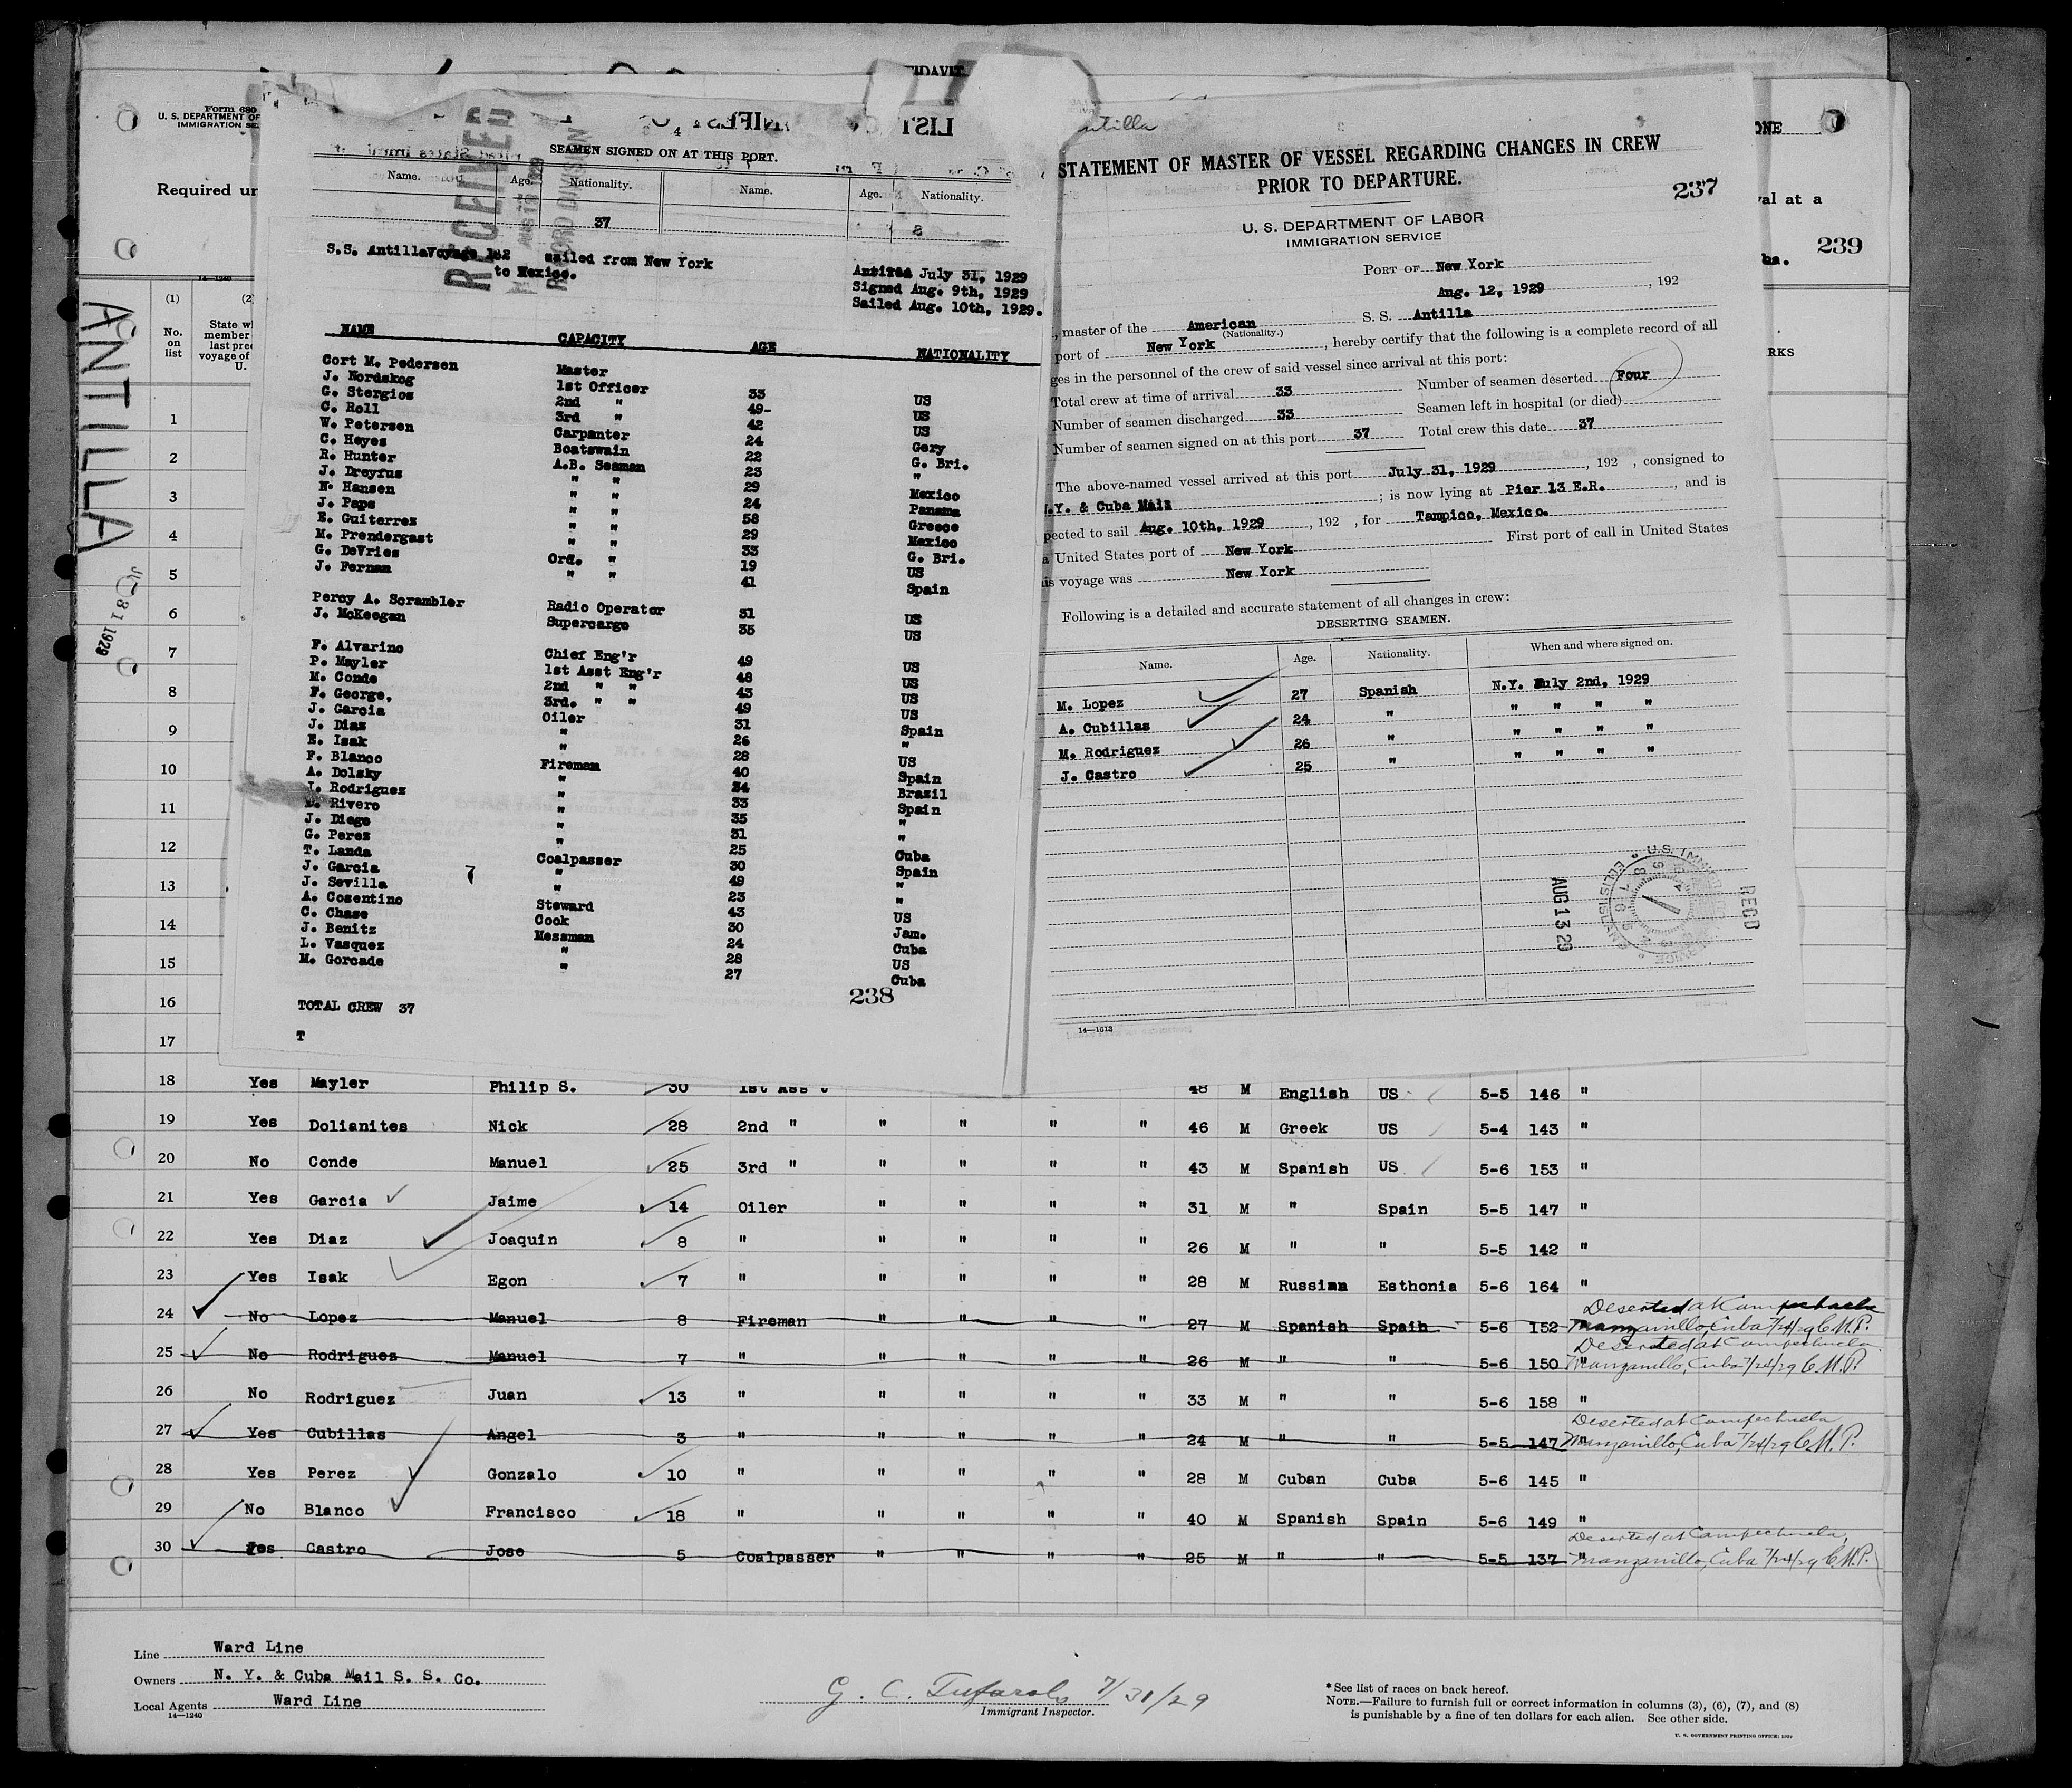 FIDAVIT
Form 680
U. S. DEPARTMENT OF
IMMIGRATION SE
Required un
14—1240
ONE
val at a
239
ba.
RKS
ANTILLA
JUL 31 1929
(1)
No. on list
(2)
State wh
member
last prec
voyage of
U.
LIST
SEAMEN SIGNED ON AT THIS PORT.
Name. Age. Nationality. Name. Age. Nationality.
37 8
RECEIVED
RECORD DIVISION
S.S. Antilla Voyage 142 sailed from New York
to Mexico.
Arrived July 31, 1929
Signed Aug. 9th, 1929
Sailed Aug. 10th, 1929.
NAME CAPACITY AGE NATIONALITY
Cort M. Pedersen Master
J. Nordskog 1st Officer 33 US
G. Stergios 2nd " 49- US
C. Roll 3rd " 42 US
W. Petersen Carpanter 24 Gery
C. Heyes Boatswain 22 G. Bri.
R. Hunter A.B. Seaman 23 "
J. Dreyfus " " 29 Mexico
N. Hansen " " 24 Panama
J. Paps " " 58 Greece
E. Guiterrez " " 29 Mexico
M. Prendergast " " 33 G. Bri.
G. DeVries Ord. " 19 US
J. Fernan " " 41 Spain
Percy A. Scrambler Radio Operator 31 US
J. McKeegan Supercargo 35 US
F. Alvarino Chief Eng'r 49 US
P. Mayler 1st Asst Eng'r 48 US
M. Conde 2nd " " 43 US
F. George, 3rd. " " 49 US
J. Garcia Oiler 31 Spain
J. Diaz " 26 "
E. Isak " 28 US
F. Blanco Fireman 40 Spain
A. Dolsky " 34 Brazil
J. Rodriguez " 33 Spain
Rivero " 35 "
J. Diego " 31 "
G. Perez " 25 Cuba
T. Landa Coalpasser 30 Spain
J. Garcia 7 " 49 "
J. Sevilla " 23 "
A. Cosentino Steward 43 US
C. Chase Cook 30 Jam.
J. Benitz Messman 24 Cuba
L. Vasquez " 28 US
M. Gorcade " 27 Cuba
238
TOTAL CREW 37
T
ntilla
STATEMENT OF MASTER OF VESSEL REGARDING CHANGES IN CREW
PRIOR TO DEPARTURE.
237
U. S. DEPARTMENT OF LABOR
IMMIGRATION SERVICE
PORT OF New York
Aug. 12, 1929, 192
, master of the American S. S. Antilla
(Nationality.)
port of New York, hereby certify that the following is a complete record of all
ges in the personnel of the crew of said vessel since arrival at this port:
Total crew at time of arrival 33 Number of seamen deserted Four
Number of seamen discharged 33 Seamen left in hospital (or died)
Number of seamen signed on at this port 37 Total crew this date 37
The above-named vessel arrived at this port July 31, 1929, 192 , consigned to
.Y. & Cuba Mail ; is now lying at Pier 13 E.R. , and is
pected to sail Aug. 10th, 1929, 192 , for Tampico, Mexico.
a United States port of New York First port of call in United States
is voyage was New York
Following is a detailed and accurate statement of all changes in crew:
DESERTING SEAMEN.
Name. Age. Nationality. When and where signed on.
M. Lopez 27 Spanish N.Y. July 2nd, 1929
A. Cubillas 24 " " " " "
M. Rodriguez 26 " " " " "
J. Castro 25 " " " " "
AUG 13 29
REC'D
14—1613
1
2
3
4
5
6
7
8
9
10
11
12
13
14
15
16
17
18 Yes Mayler Philip S. 30 1st Ass't 48 M English US 5-5 146 "
19 Yes Dolianites Nick 28 2nd " " " " " 46 M Greek US 5-4 143 "
20 No Conde Manuel 25 3rd " " " " " 43 M Spanish US 5-6 153 "
21 Yes Garcia Jaime 14 Oiler " " " " 31 M " Spain 5-5 147 "
22 Yes Diaz Joaquin 8 " " " " " 26 M " " 5-5 142 "
23 Yes Isak Egon 7 " " " " " 28 M Russian Esthonia 5-6 164 "
24 No Lopez Manuel 8 Fireman " " " " 27 M Spanish Spain 5-6 152 Deserted at Campechuela Manzanillo, Cuba 7/24/29 C.M.P.
25 No Rodriguez Manuel 7 " " " " " 26 M " " 5-6 150 " Deserted at Campechuela Manzanillo, Cuba 7/24/29 C.M.P.
26 No Rodriguez Juan 13 " " " " " 33 M " " 5-6 158 "
27 Yes Cubillas Angel 3 " " " " " 24 M " " 5-5 147 " Deserted at Campechuela Manzanillo, Cuba 7/24/29 C.M.P.
28 Yes Perez Gonzalo 10 " " " " " 28 M Cuban Cuba 5-6 145 "
29 No Blanco Francisco 18 " " " " " 40 M Spanish Spain 5-6 149 "
30 Yes Castro Jose 5 Coalpasser " " " " 25 M " " 5-5 137 " Deserted at Campechuela, Manzanillo, Cuba 7/24/29 C.M.P.
Line Ward Line
Owners N. Y. & Cuba Mail S. S. Co.
Local Agents Ward Line
14—1240
G. C. 7/31/29
Immigrant Inspector.
* See list of races on back hereof.
NOTE.—Failure to furnish full or correct information in columns (3), (6), (7), and (8)
is punishable by a fine of ten dollars for each alien. See other side.
U. S. GOVERNMENT PRINTING OFFICE: 1929